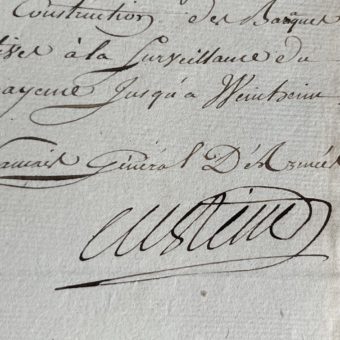 Construction des Baraques
tives à la Surveillance du
ayence Jusqu'à Weinheim
Général D'Armée